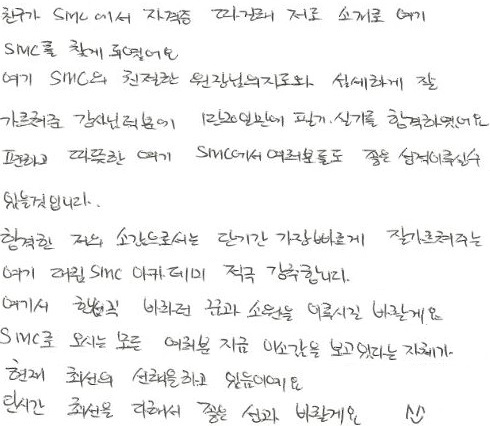 친구가 SMC에서 자격증 따길래 저도 소개로 여기
SMC를 찾게 되였어요
여기 SMC의 친절한 원장님의지도와 섬세하게 잘
가르쳐준 강사님덕분에 1달20일만에 필기.실기를 합격하였어요
편하고 따뜻한 여기 SMC에서 여러분들도 좋은 성적이루실수
있을것입니다..
합격한 저의 소감으로서는 단기간 가장빠르게 잘가르쳐주는
여기 대림 SMC 아카데미 적극 강추합니다.
여기서 한번꼭 바라던 꿈과 소원을 이룩시길 바랄게요
SMC로 오시는 모든 여러분 지금 이소감을 보고있다는 자체가
현재 최선의 선택을하고 있음이에요
단시간 최선을 다해서 좋은 성과 바랄게요